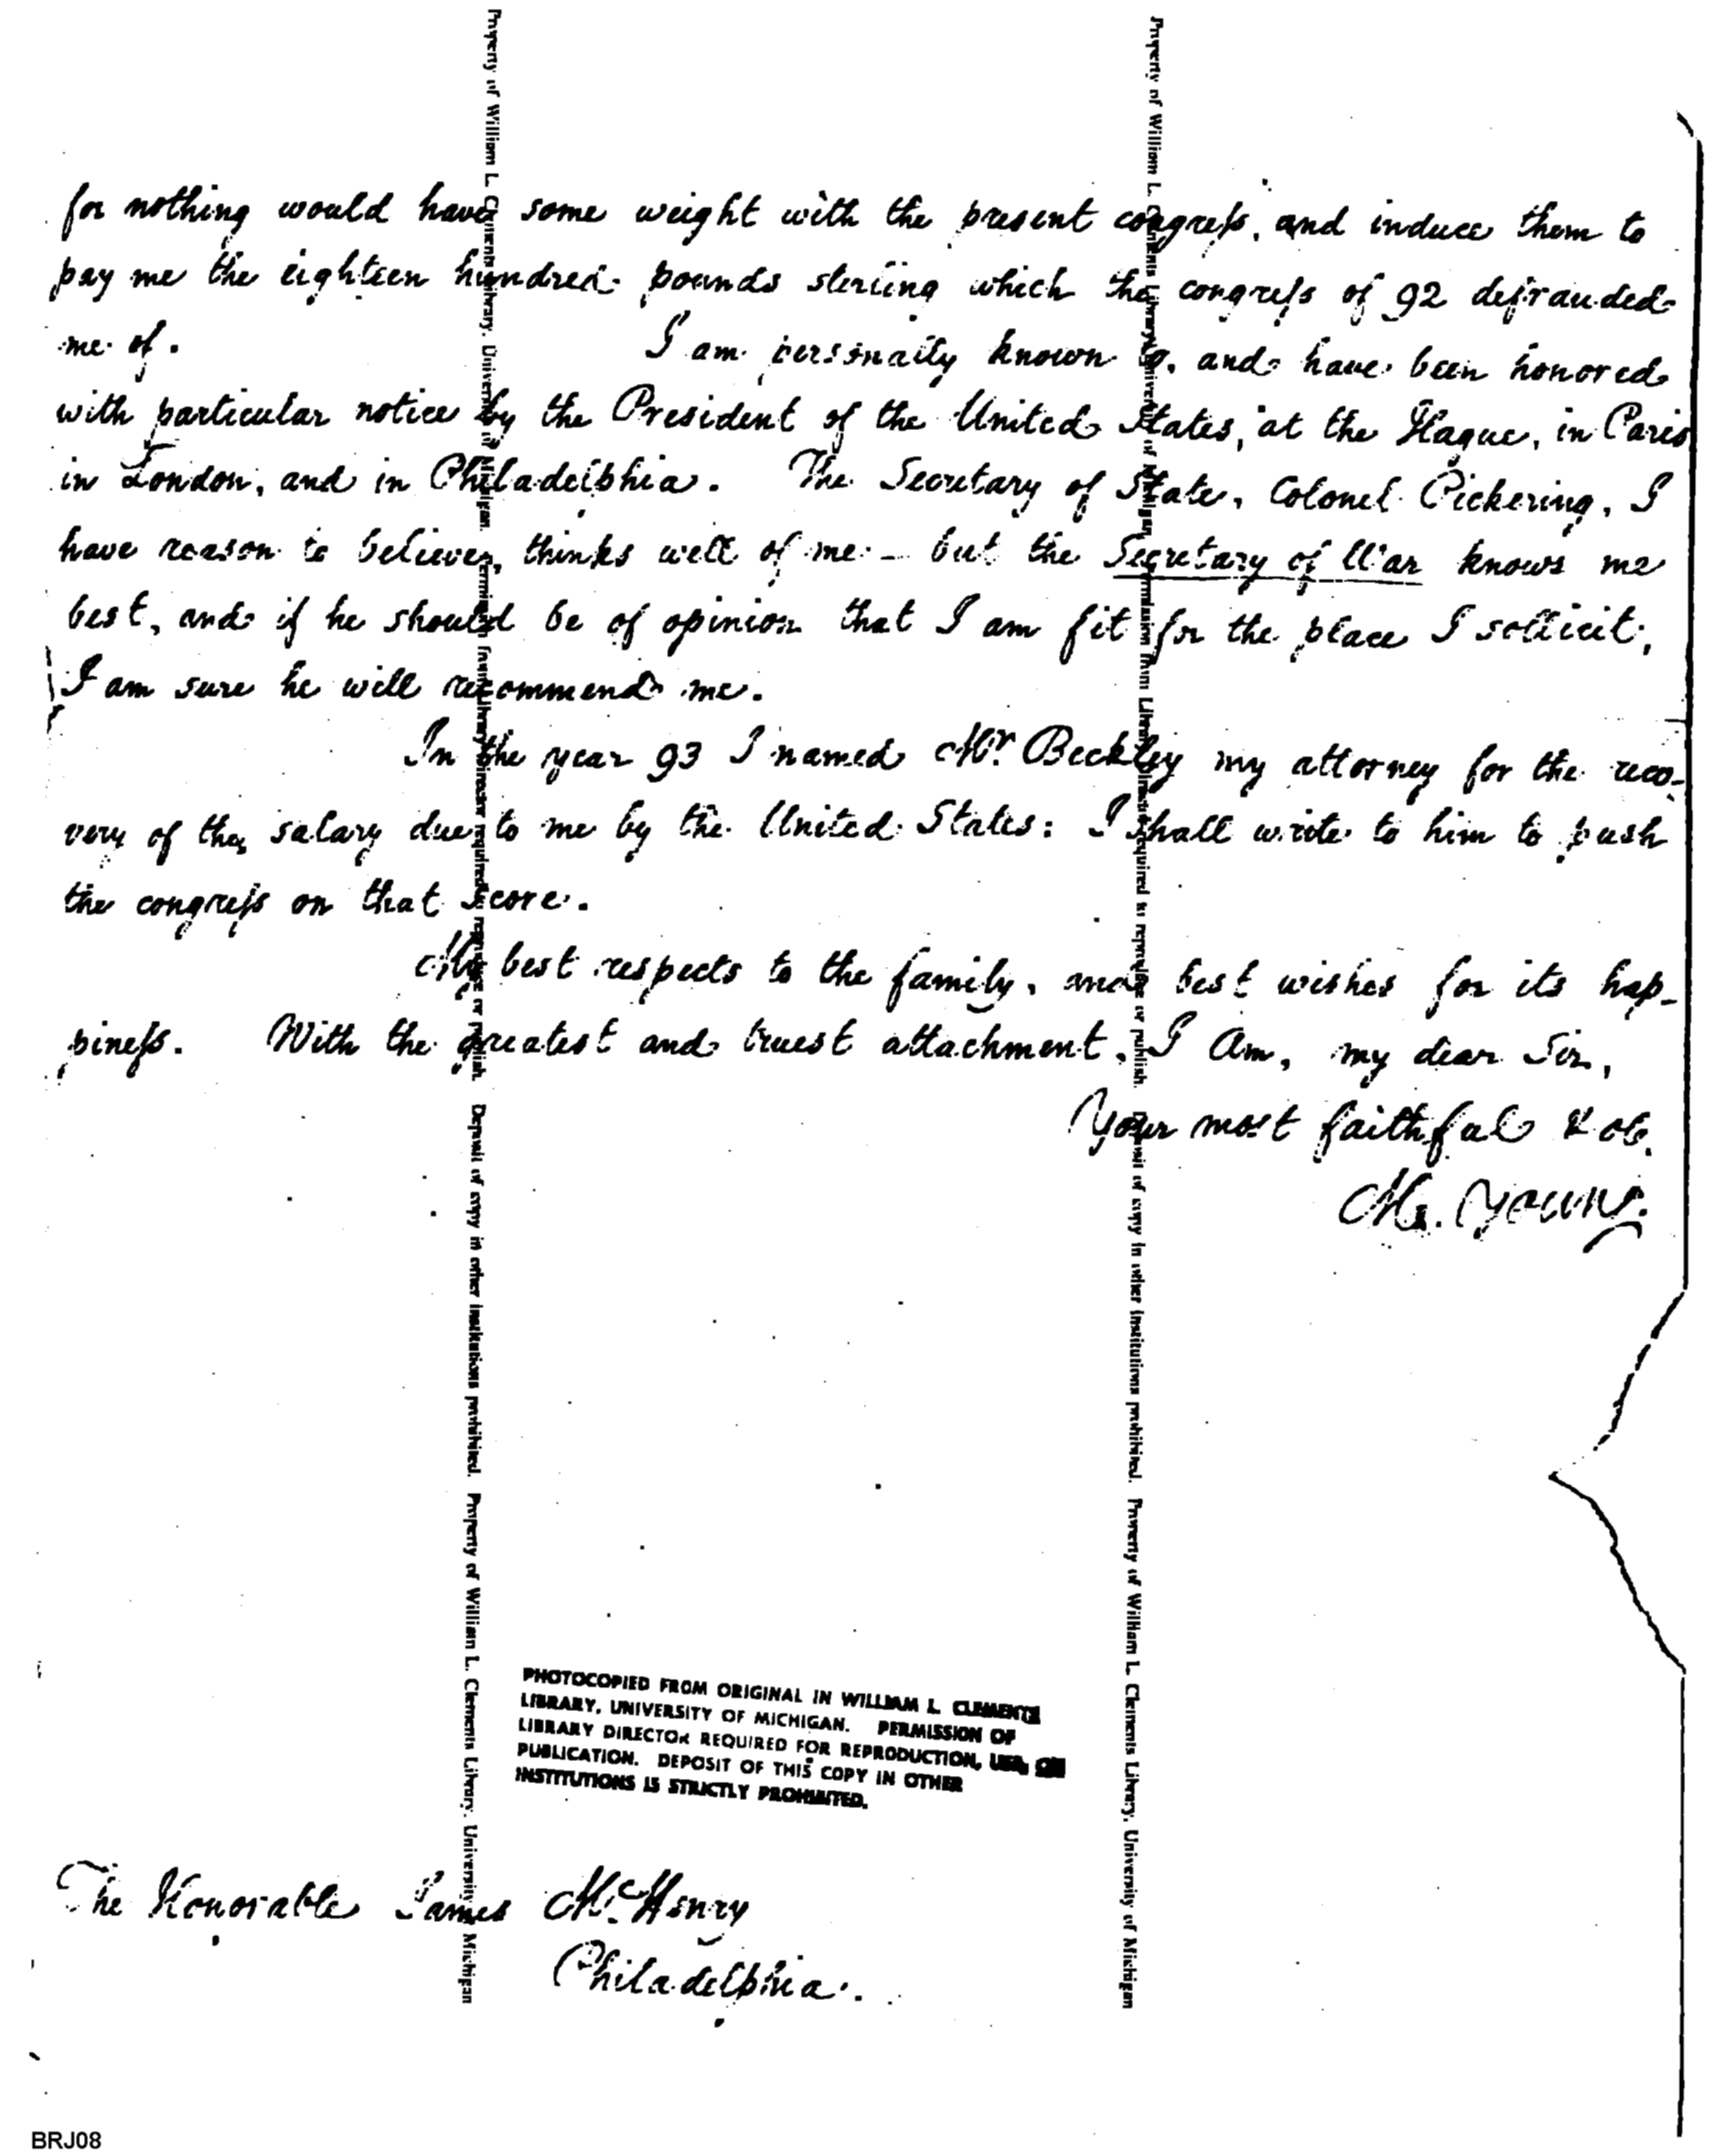 for nothing would have some weight with the present congress, and induce them to
pay me the eighteen hundred pounds sterling which the congress of 92 defrauded
me of. I am personally known to, and have been honored
with particular notice by the President of the United States, at the Hague, in Paris
in London, and in Philadelphia. The Secretary of State, Colonel Pickering, I
have reason to believe, thinks well of me – but the Secretary of War knows me
best, and if he should be of opinion that I am fit for the place I sollicit,
I am sure he will recommend me.
In the year 93 I named Mr. Beckley my attorney for the reco-
very of the salary due to me by the United States: I shall write to him to push
the congress on that score.
My best respects to the family, and best wishes for its hap-
piness. With the greatest and truest attachment, I Am, my dear Sir,
Your most faithful & ob.
M. Young.
PHOTOCOPIED FROM ORIGINAL IN WILLIAM L. CLEMENTS
LIBRARY, UNIVERSITY OF MICHIGAN. PERMISSION OF
LIBRARY DIRECTOR REQUIRED FOR REPRODUCTION, USE, OR
PUBLICATION. DEPOSIT OF THIS COPY IN OTHER
INSTITUTIONS IS STRICTLY PROHIBITED.
The Honorable James McHenry
Philadelphia.
BRJ08
Property of William L. Clements Library, University of Michigan. Permission from Library Director required to reproduce or publish. Deposit of copy in other institutions prohibited. Property of William L. Clements Library, University of Michigan
Property of William L. Clements Library, University of Michigan. Permission from Library Director required to reproduce or publish. Deposit of copy in other institutions prohibited. Property of William L. Clements Library, University of Michigan